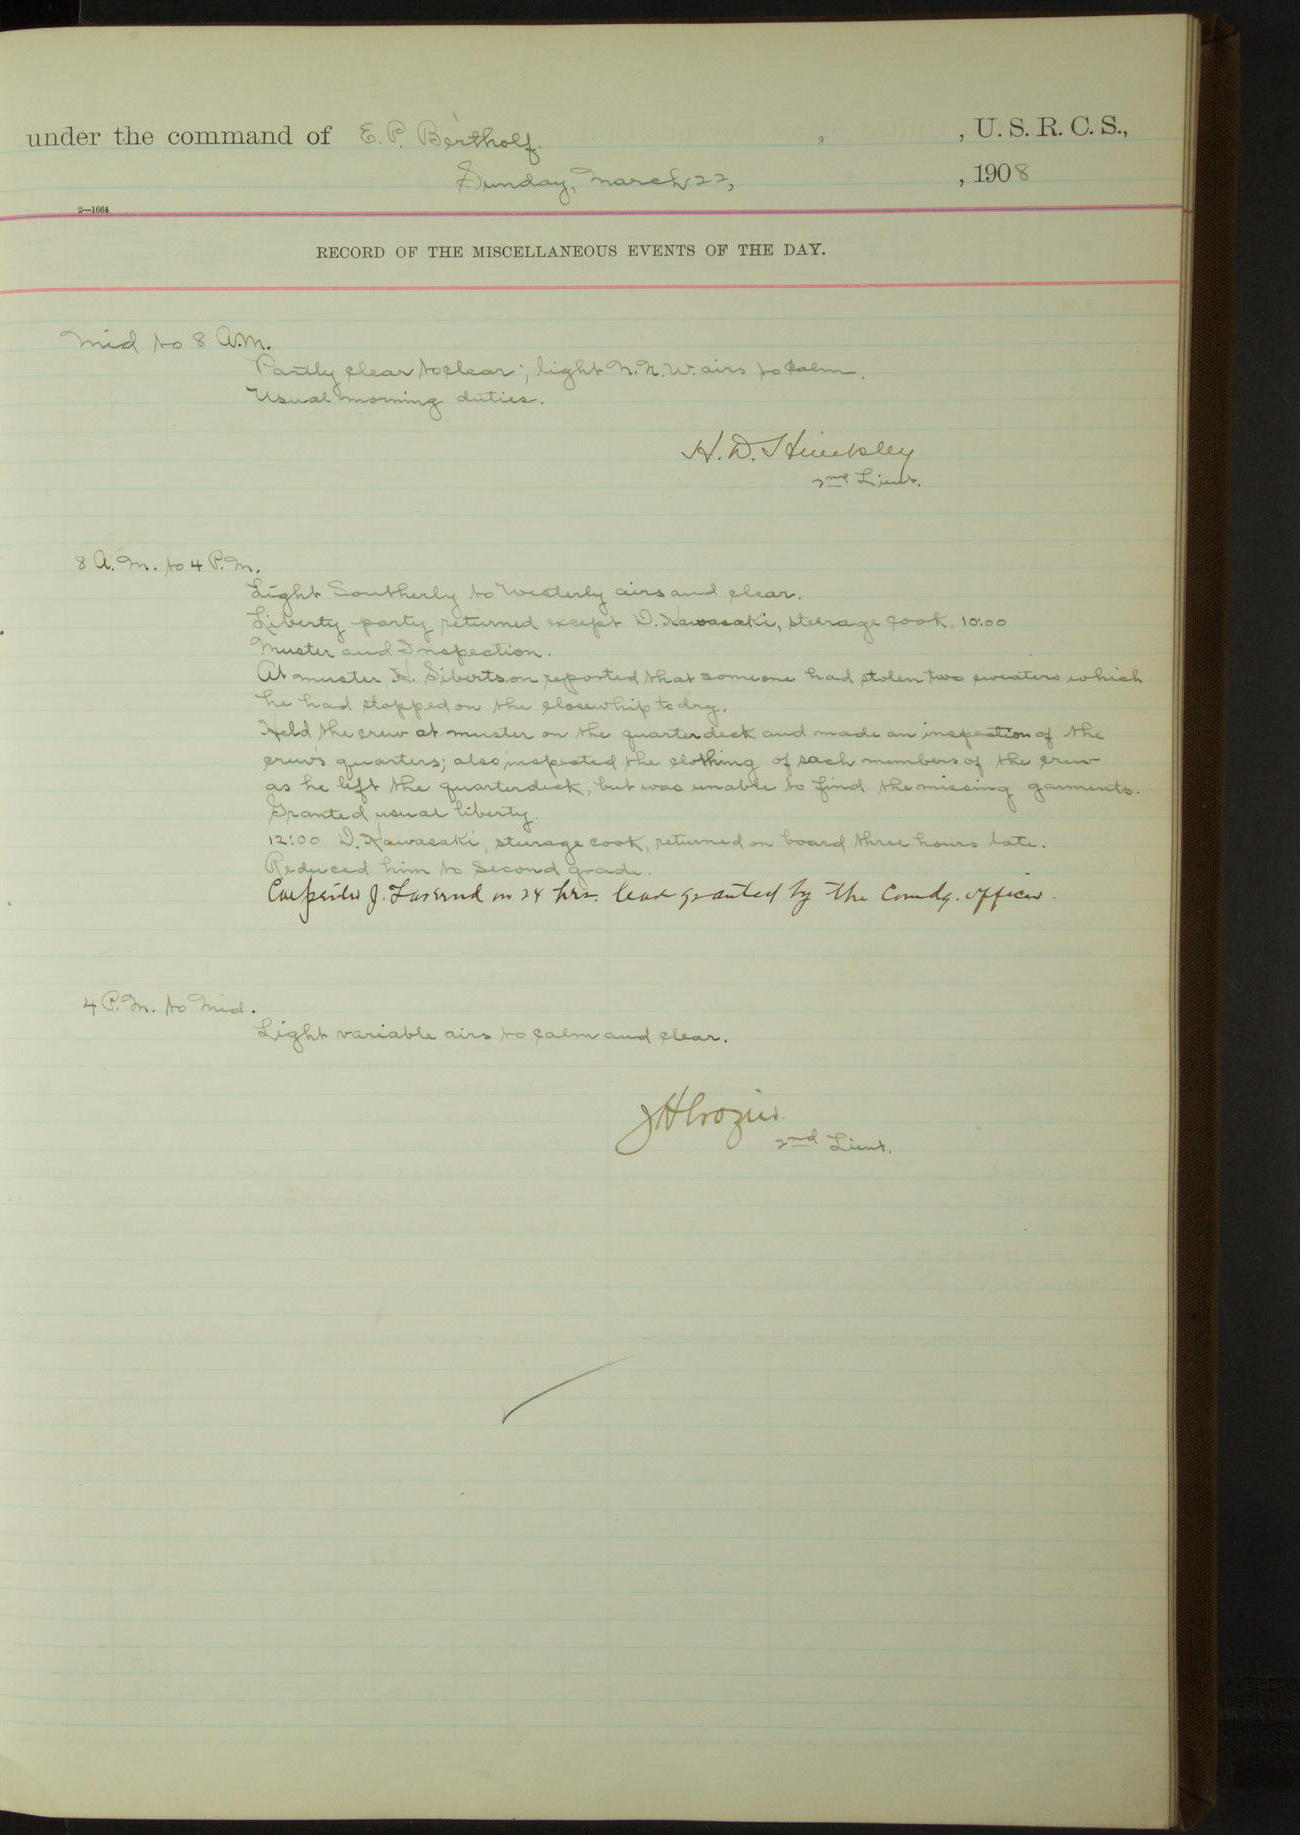 under the command of E. P. Bertholf. , , U. S. R. C. S.,
Sunday, March 22, , 1908
2—1664
RECORD OF THE MISCELLANEOUS EVENTS OF THE DAY.
Mid to 8 A.M.
Partly clear to clear; light N.N.W. airs to calm.
Usual morning duties.
H. D. Hinckley
2nd Lieut.
8 A.M. to 4 P.M.
Light Southerly to Westerly airs and clear.
Liberty party returned except D. Kawasaki, steerage cook, 10:00
Muster and Inspection.
At muster H. Sibertson reported that someone had stolen two sweaters which
he had stopped on the clothes whip to dry.
Held the crew at muster on the quarterdeck and made an inspection of the
crew's quarters; also inspected the clothing of each members of the crew
as he left the quarterdeck, but was unable to find the missing garments.
Granted usual liberty.
12:00 D. Kawasaki, steerage cook, returned on board three hours late.
Reduced him to second grade.
Carpenter J. on 24 hrs. leave granted by the Comdg. officer.
4 P.M. to Mid.
Light variable airs to calm and clear.
J H Crozier
2nd Lieut.